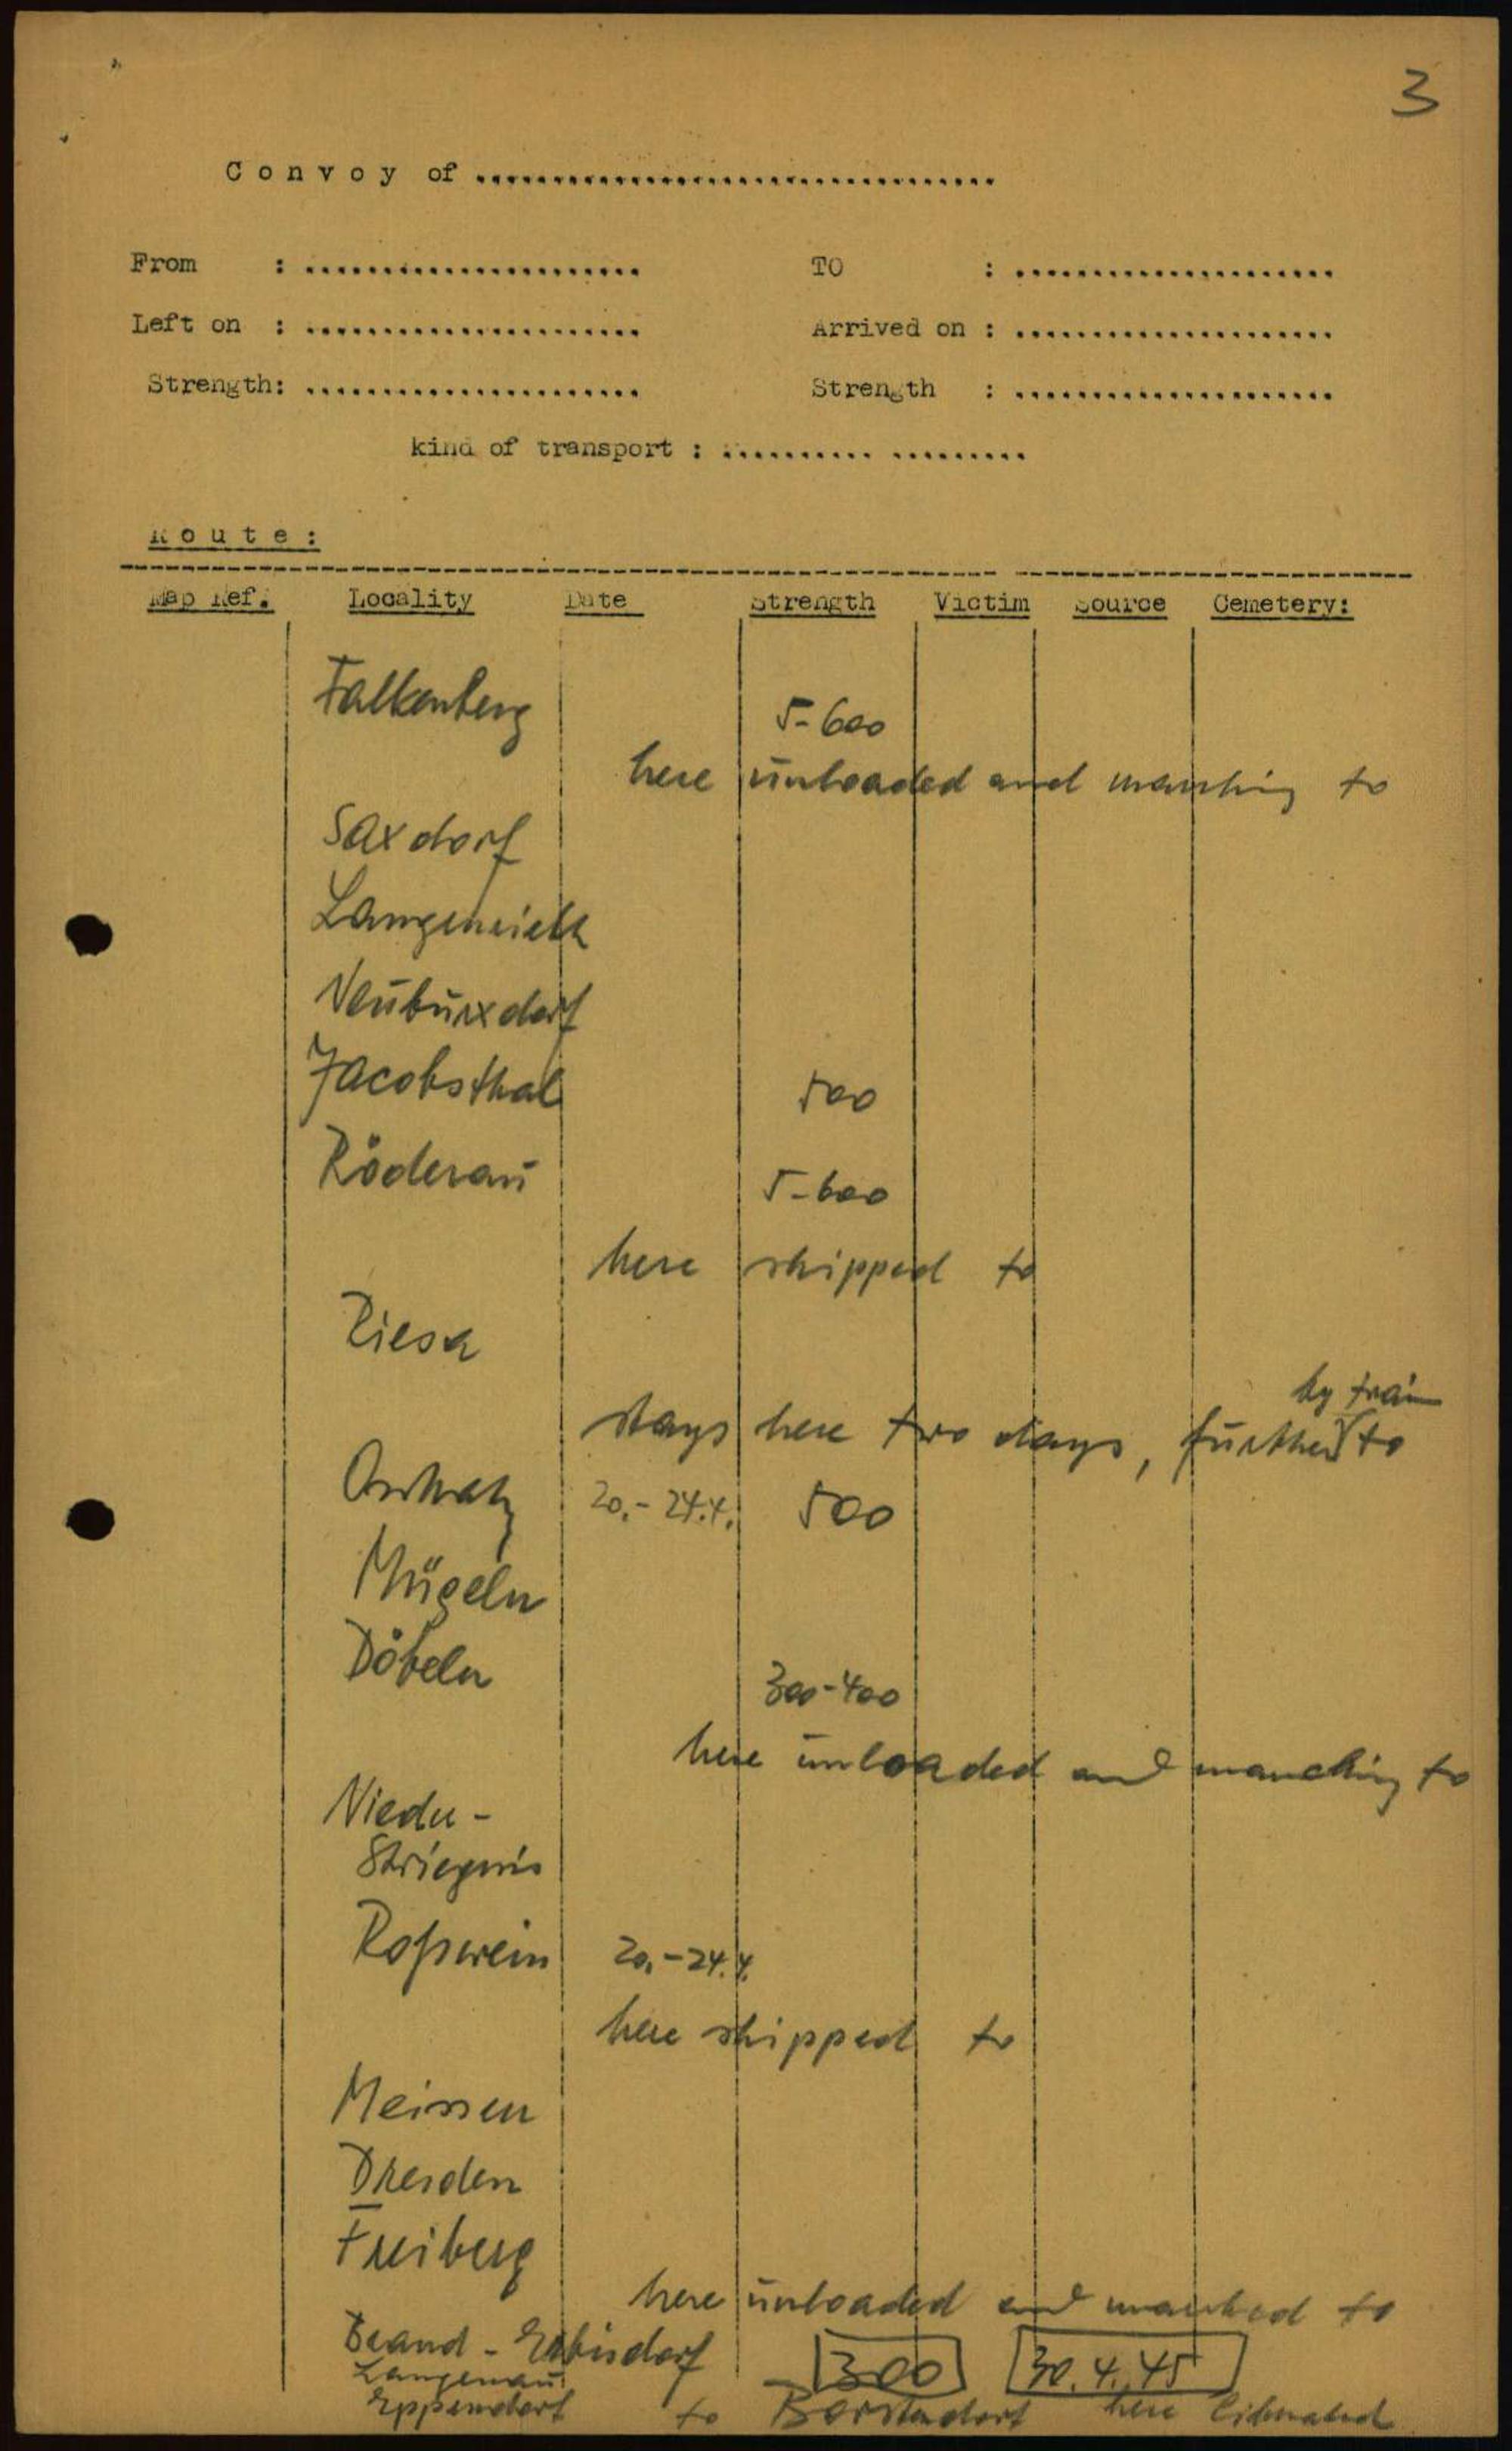 3
Convoy of ....................................
From : ...................... TO : .....................
Left on : ...................... Arrived on : .....................
Strength: ...................... Strength : .....................
kind of transport : .......... .........
Route:
Map Ref. Locality Date Strength Victim Source Cemetery:
Falkenberg 5-600
here unloaded and marching to
Saxdorf
Langenrieth
Neuburxdorf
Jacobsthal 500
Röderau 5-600
here shipped to
Riesa
by train
stays here two days, further to
Oschatz 20.-24.4. 500
Mügeln
Döbeln 300-400
here unloaded and marching to
Nieder-
Striegnis
Roßwein 20.-24.4.
here shipped to
Meissen
Dresden
Freiberg
here unloaded and marched to
Brand-Erbisdorf 300 30.4.45
Langenau
Eppendorf to Borstendorf here liberated